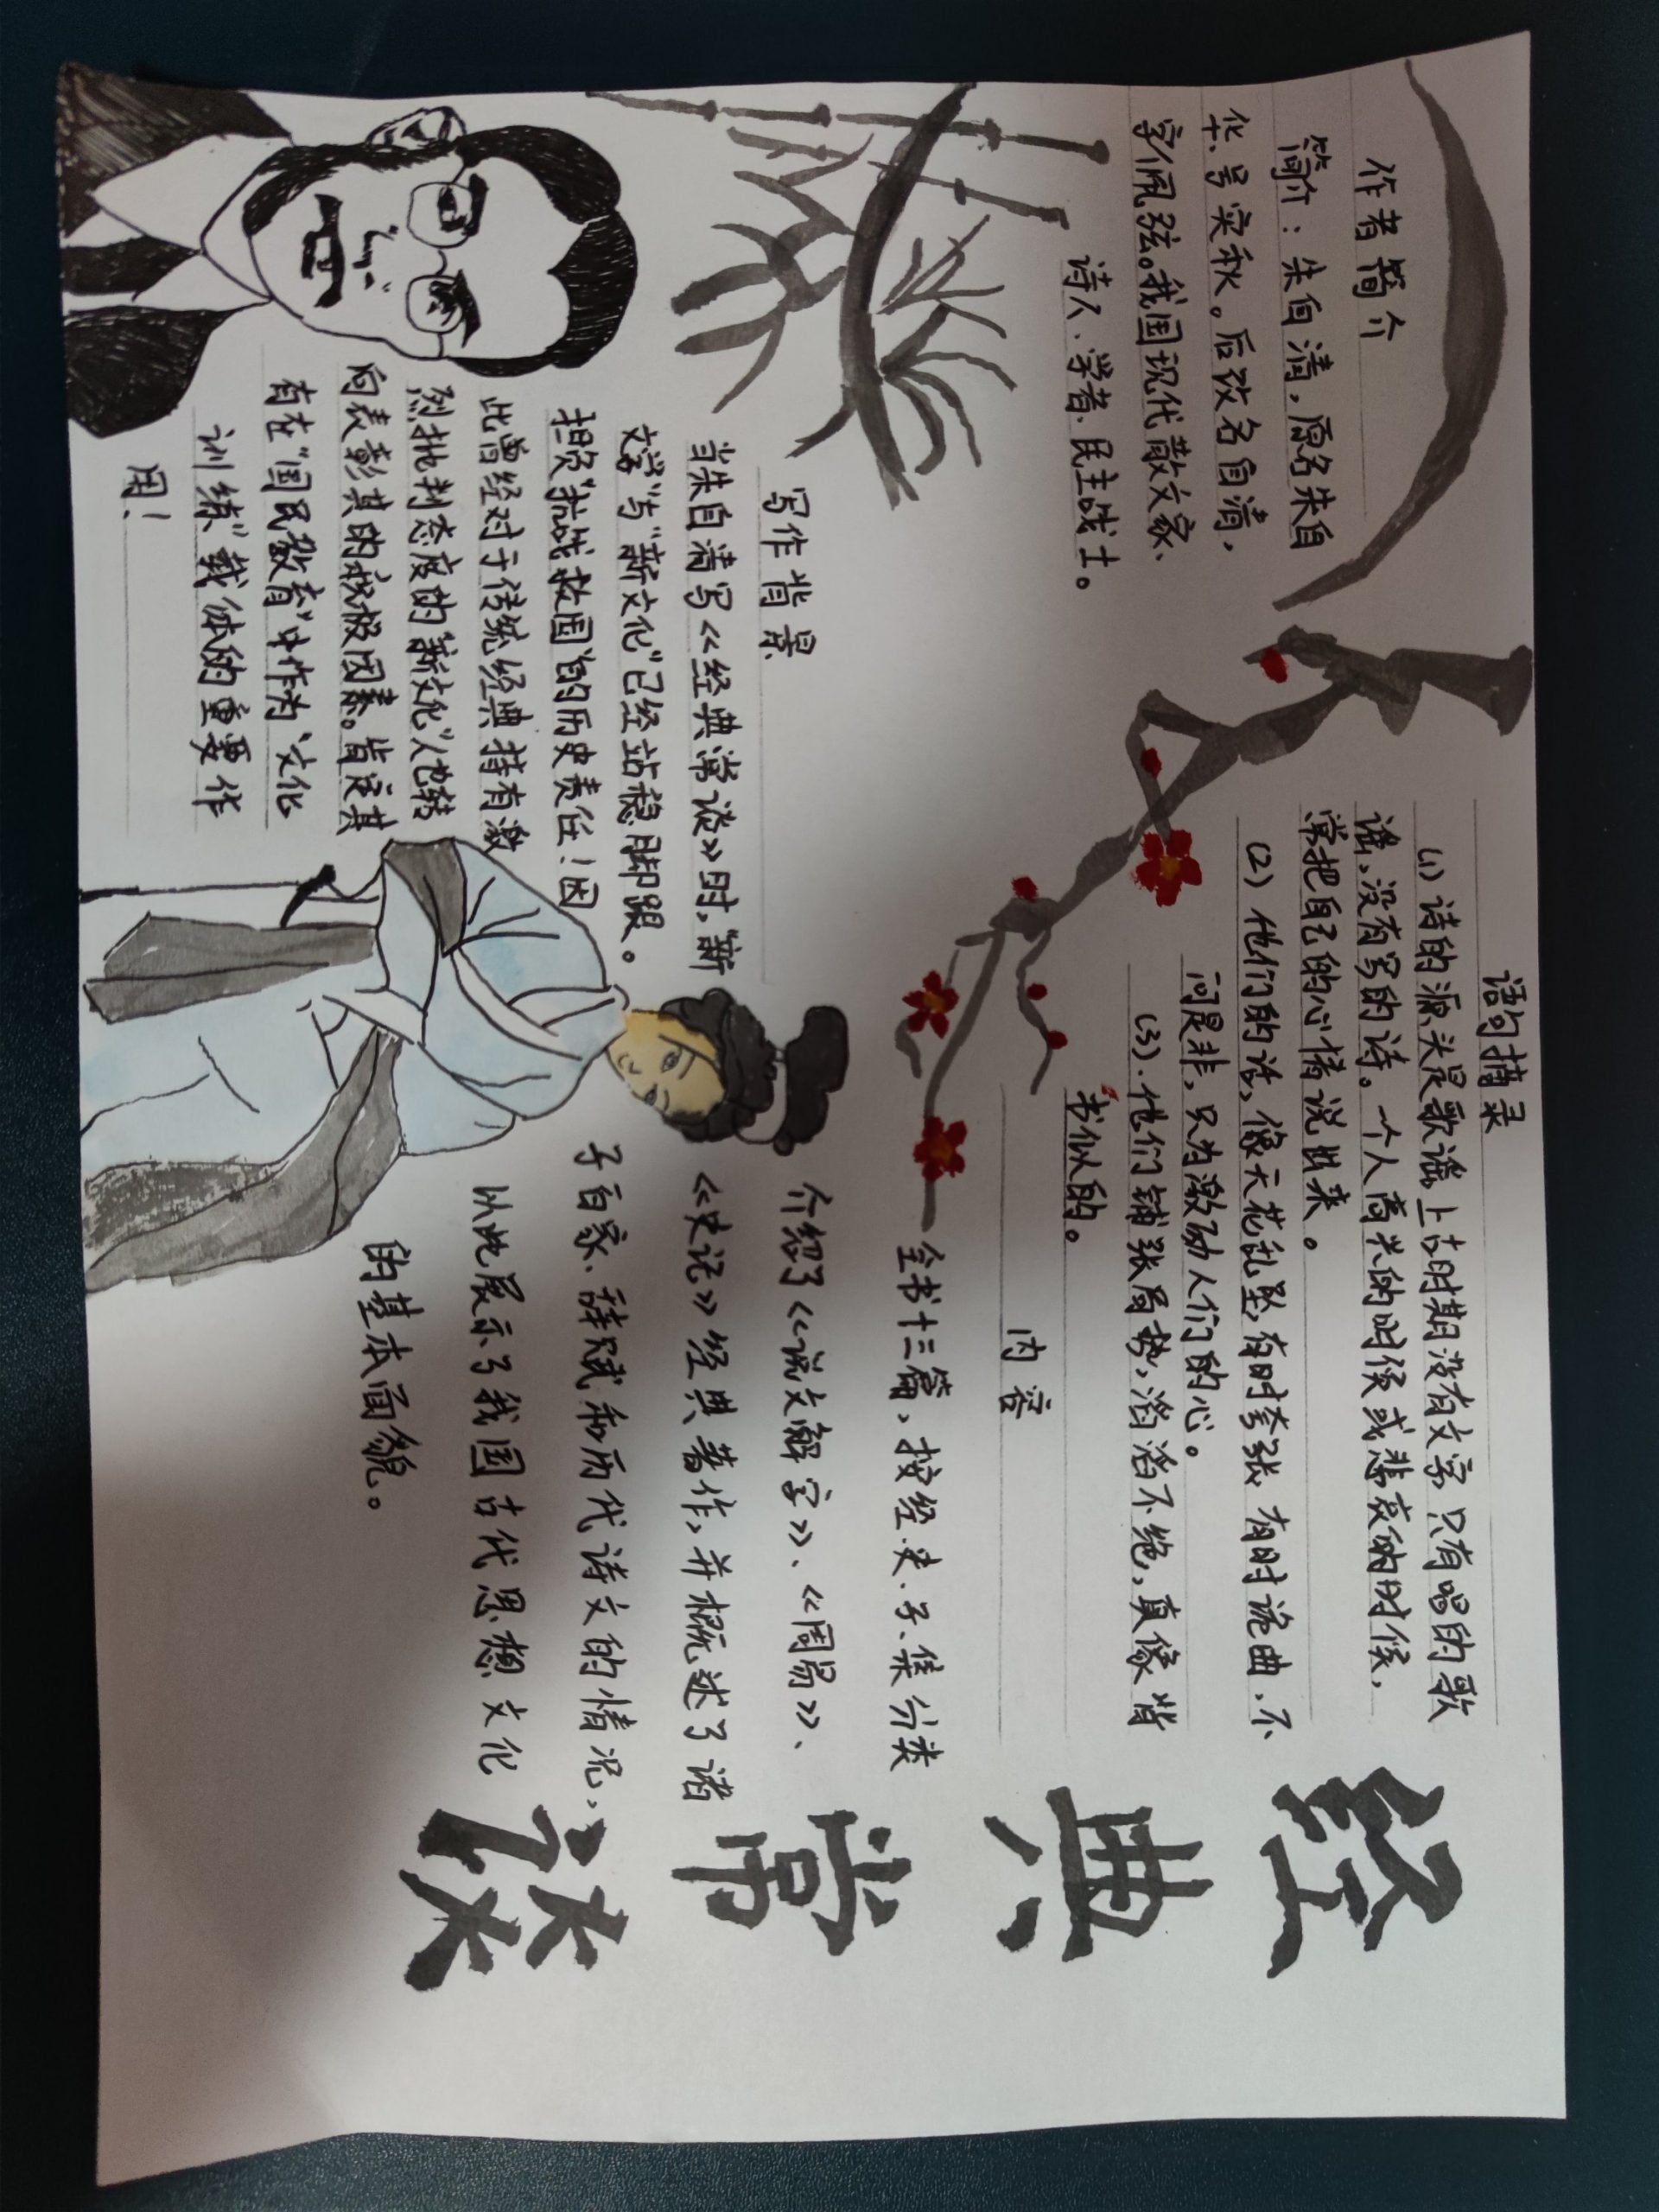 作者简介
简介：朱自清，原名朱自
华，号实秋。后改名自清，
字佩弦。我国现代散文家、
诗人、学者、民主战士。
语句摘录
（1）诗的源头是歌谣，上古时期没有文字，只有唱的歌
谣，没有写的诗。一个人高兴的时候或悲哀的时候，
常把自己的心情说出来。
（2）他们的话，像天花乱坠，有时夸张，有时诡曲，不
问是非，只为激动人们的心。
（3）.他们铺张局势，滔滔不绝，真像背
书似的。
写作背景
当朱自清写《经典常谈》时，“新
文学”与“新文化”已经站稳脚跟。
担负“抗战救国”的历史责任！因
此曾经对于传统经典持有激
烈批判态度的“新文化”人也转
向表彰其的积极因素。肯定其
有在“国民教育”中作为“文化
训练”载体的重要作
用！
内容
全书十三篇，按经、史、子、集分类
介绍了《说文解字》、《周易》、
《史记》经典著作，并概述了诸
子百家、辞赋和历代诗文的情况，
以此展示了我国古代思想文化
的基本面貌。
经典常谈